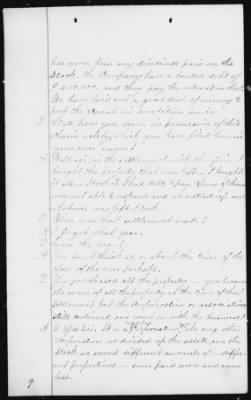 has never been any dividends paid on the
Stock. the Company have a bonded debt of
and they pay the interest on that
We have laid out a good deal of money to
put the Canal in condition since.
Q State how you came in possession of this
Claim solely, which you have filed here in
your own name?
A Well sir in the settlement with the firm I
bought the property that was left. I bought
it all. Some of them
were not able to and we settled up and
whatever was left I took.
Q When was that settlement made?
A I forget what year.
Q was the war?
A Yes sir, I think so, or about the time of the
close of the war perhaps.
Q You purchased all the property — you became
the owner of all the property at the time of that
settlement but the Corporation or association
still continued and went on with the business?
A Yes sir. It was a Corporation like any other
Corporation we divided up the assets, and the
Stock we owned different amounts of — differ-
ent proportions — some had more and some
less.
9